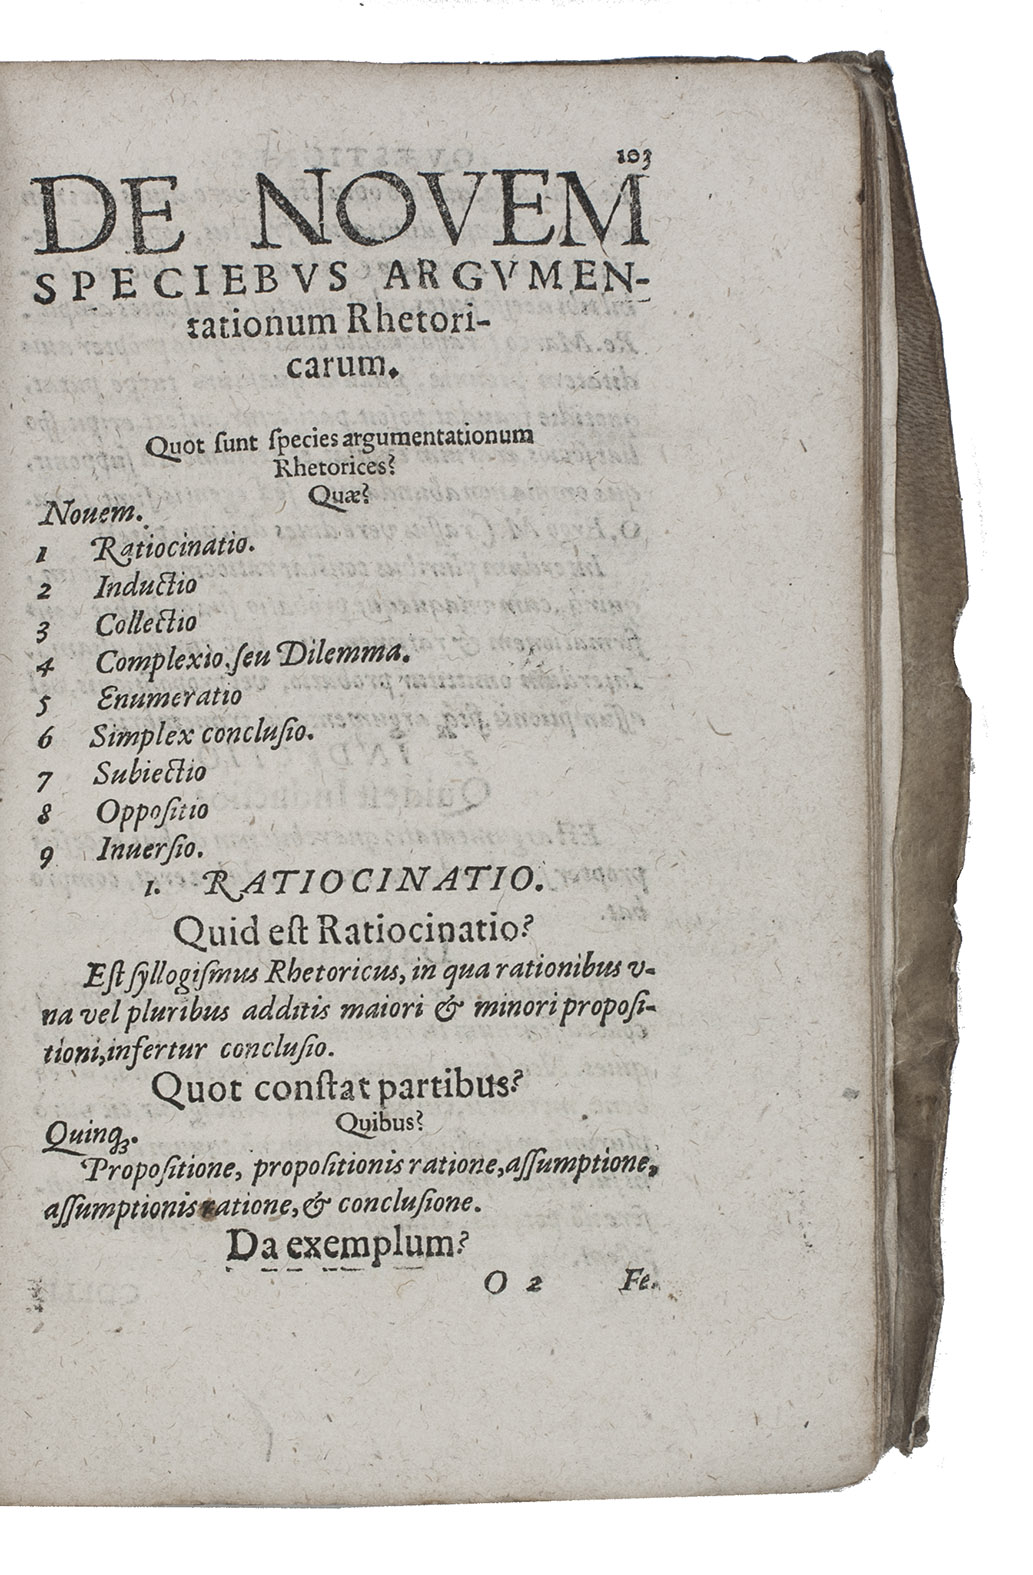 103
DE NOVEM
SPECIEBVS ARGVMEN-
tationum Rhetori-
carum.
Quot ſunt ſpecies argumentationum
Rhetorices?
Quæ?
Nouem.
1 Ratiocinatio.
2 Inductio
3 Collectio
4 Complexio, ſeu Dilemma.
5 Enumeratio
6 Simplex concluſio.
7 Subiectio
8 Oppoſitio
9 Inuerſio.
1. RATIOCINATIO.
Quid eſt Ratiocinatio?
Eſt ſyllogiſmus Rhetoricus, in qua rationibus v-
na vel pluribus additis maiori & minori propoſi-
tioni, infertur concluſio.
Quot conſtat partibus?
Quibus?
Quinq;.
Propoſitione, propoſitionis ratione, aſſumptione,
aſſumptionis ratione, & concluſione.
Da exemplum?
O 2 Fe.